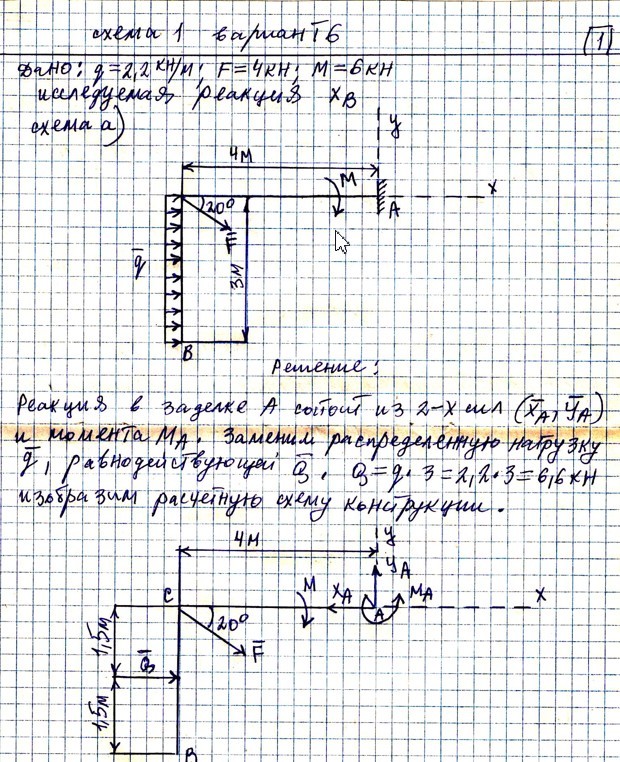 схема 1 вариант 6
1
Дано: q=2,2 кн/м; F=4кн; M=6кн
исследуемая реакция XB
схема а)
y
4м
M
x
20°
A
F
q
3м
B
Решение:
Реакция в заделке A состоит из 2-х сил (XA, YA)
и момента MA. Заменим распределенную нагрузку
q, равнодействующей Q. Q=q·3=2,2·3=6,6кн
изобразим расчетную схему конструкции.
y
4м
YA
C
M
XA
MA
x
20°
A
1,5м
F
Q
1,5м
B